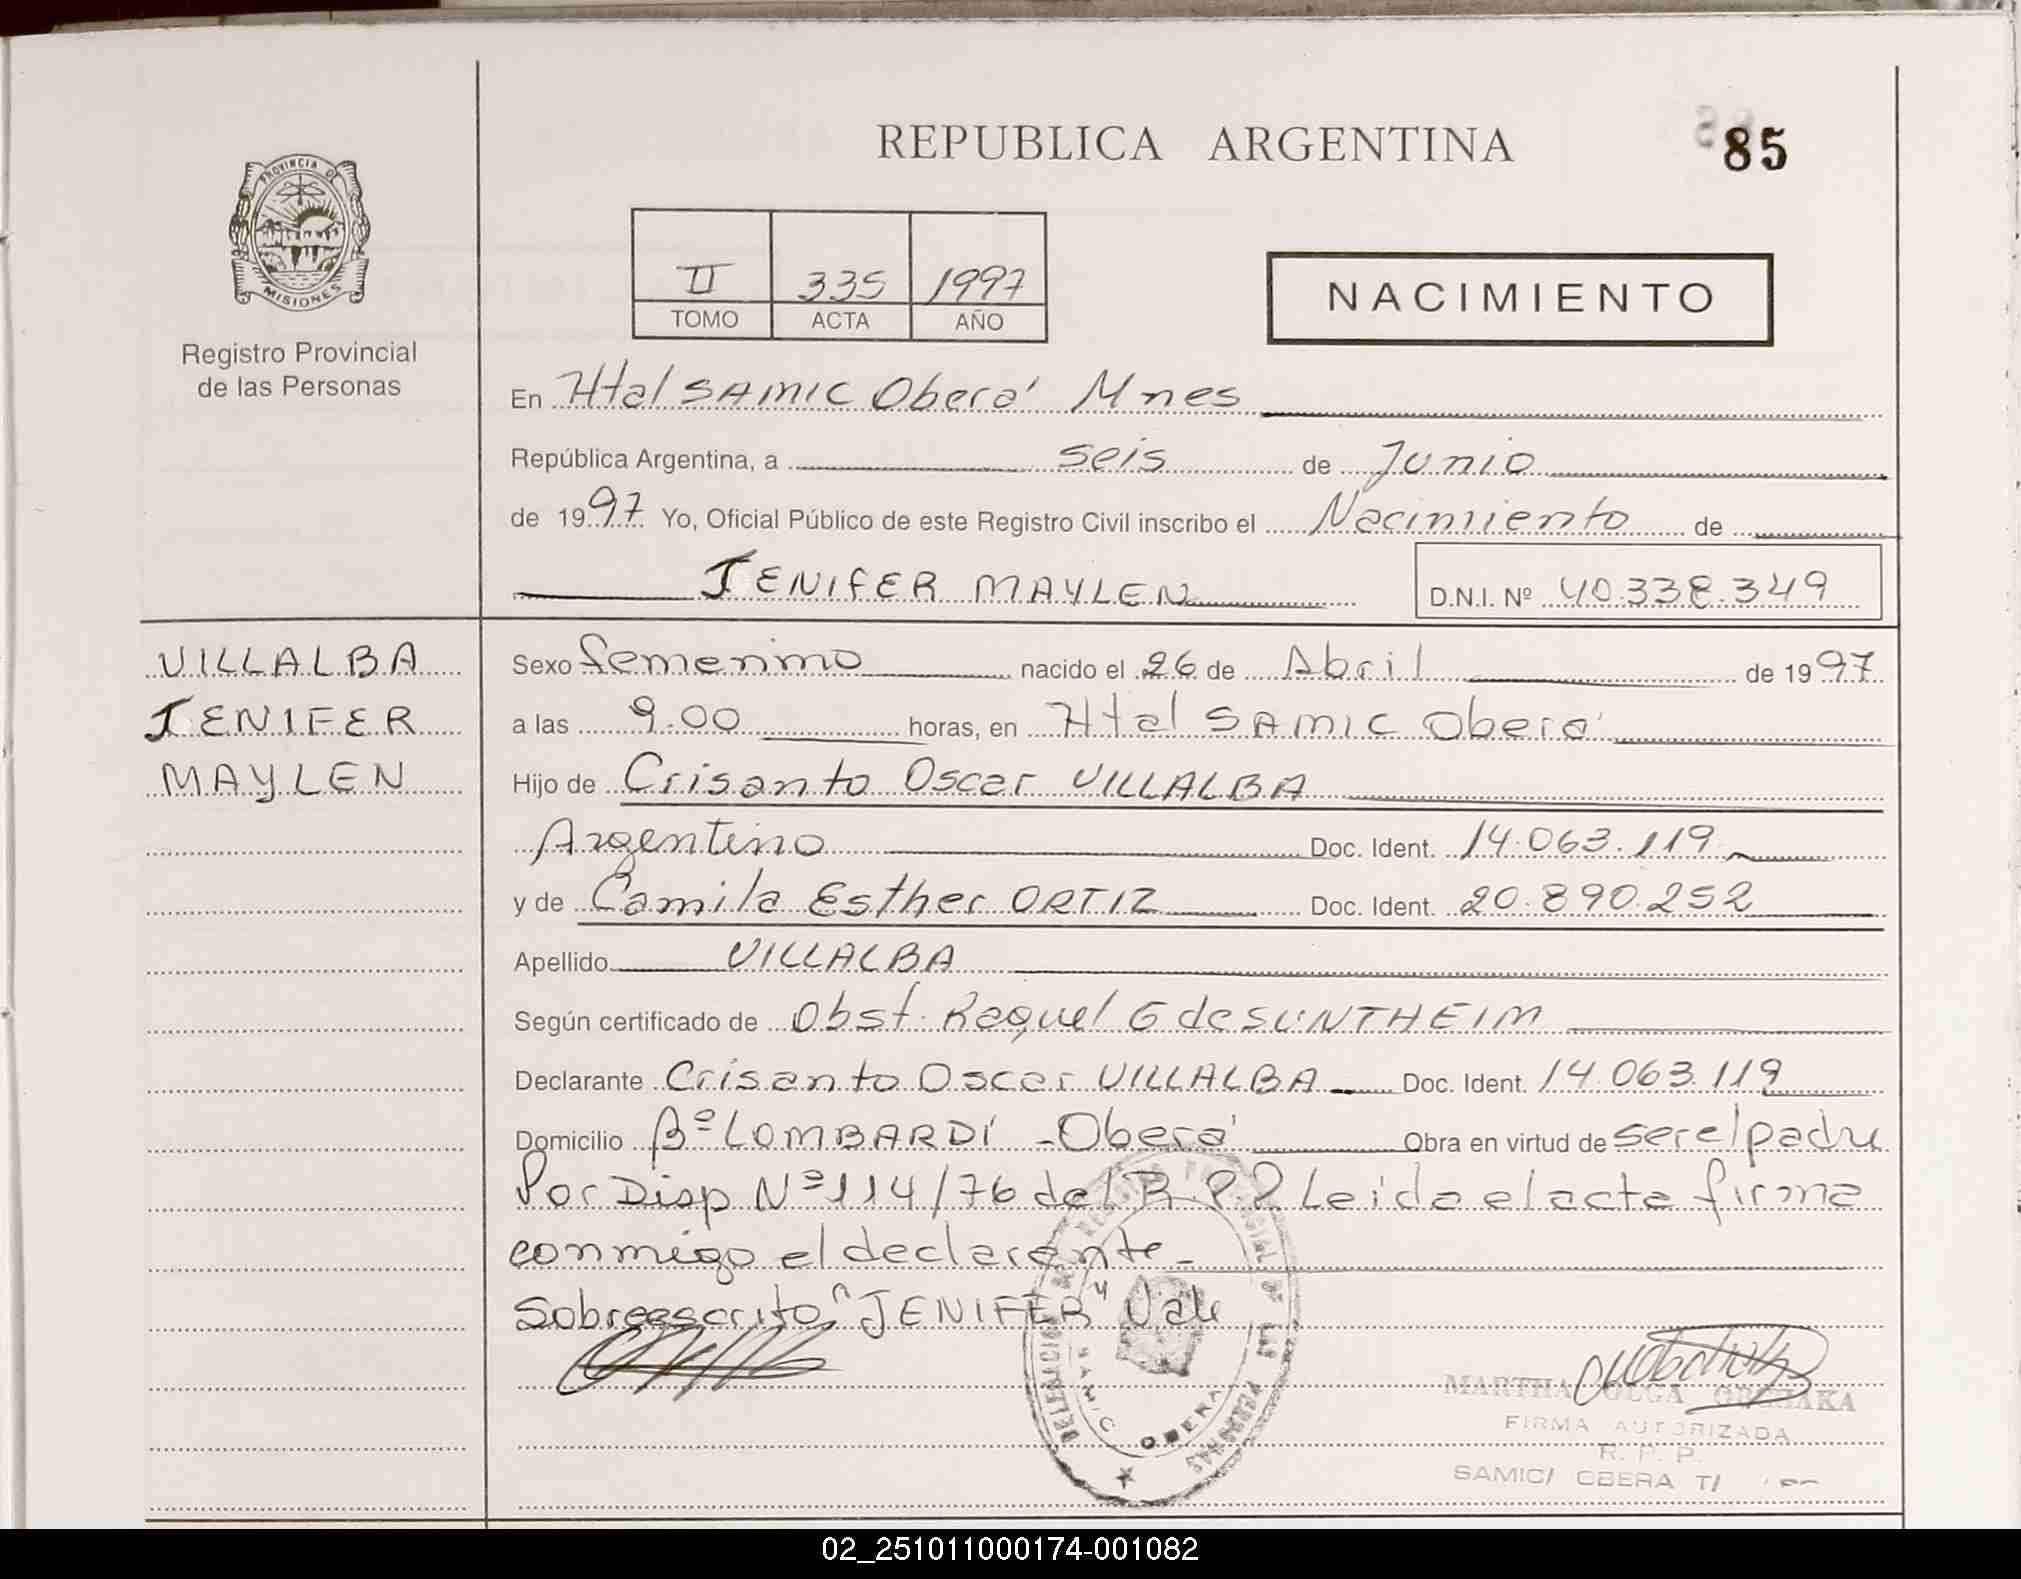 REPUBLICA ARGENTINA
85
PROVINCIA DE
MISIONES
Registro Provincial
de las Personas
II 335 1997
TOMO ACTA AÑO
NACIMIENTO
En Htal SAMIC Oberá Mnes
República Argentina, a seis de Junio
de 1997 Yo, Oficial Público de este Registro Civil inscribo el Nacimiento de
JENIFER MAYLEN D.N.I. Nº 40.338.349
VILLALBA
JENIFER
MAYLEN
Sexo femenino nacido el 26 de Abril de 1997
a las 9.00 horas, en Htal SAMIC Oberá
Hijo de Crisanto Oscar VILLALBA
Argentino Doc. Ident. 14.063.119
y de Camila Esther ORTIZ Doc. Ident. 20.890.252
Apellido VILLALBA
Según certificado de Obst. Raquel G de SUNTHEIM
Declarante Crisanto Oscar VILLALBA Doc. Ident. 14.063.119
Domicilio Bº LOMBARDI - Oberá Obra en virtud de ser el padre
Por Disp Nº 114/76 del R.P.P Leida el acta firma
conmigo el declarante -
Sobreescrito "JENIFER" Vale
DELEGACION REGISTRO PROVINCIAL DE LAS PERSONAS
SAMIC OBERA
MARTHA OLGA
FIRMA AUTORIZADA
R. P. P.
SAMIC/ OBERA
02_251011000174-001082